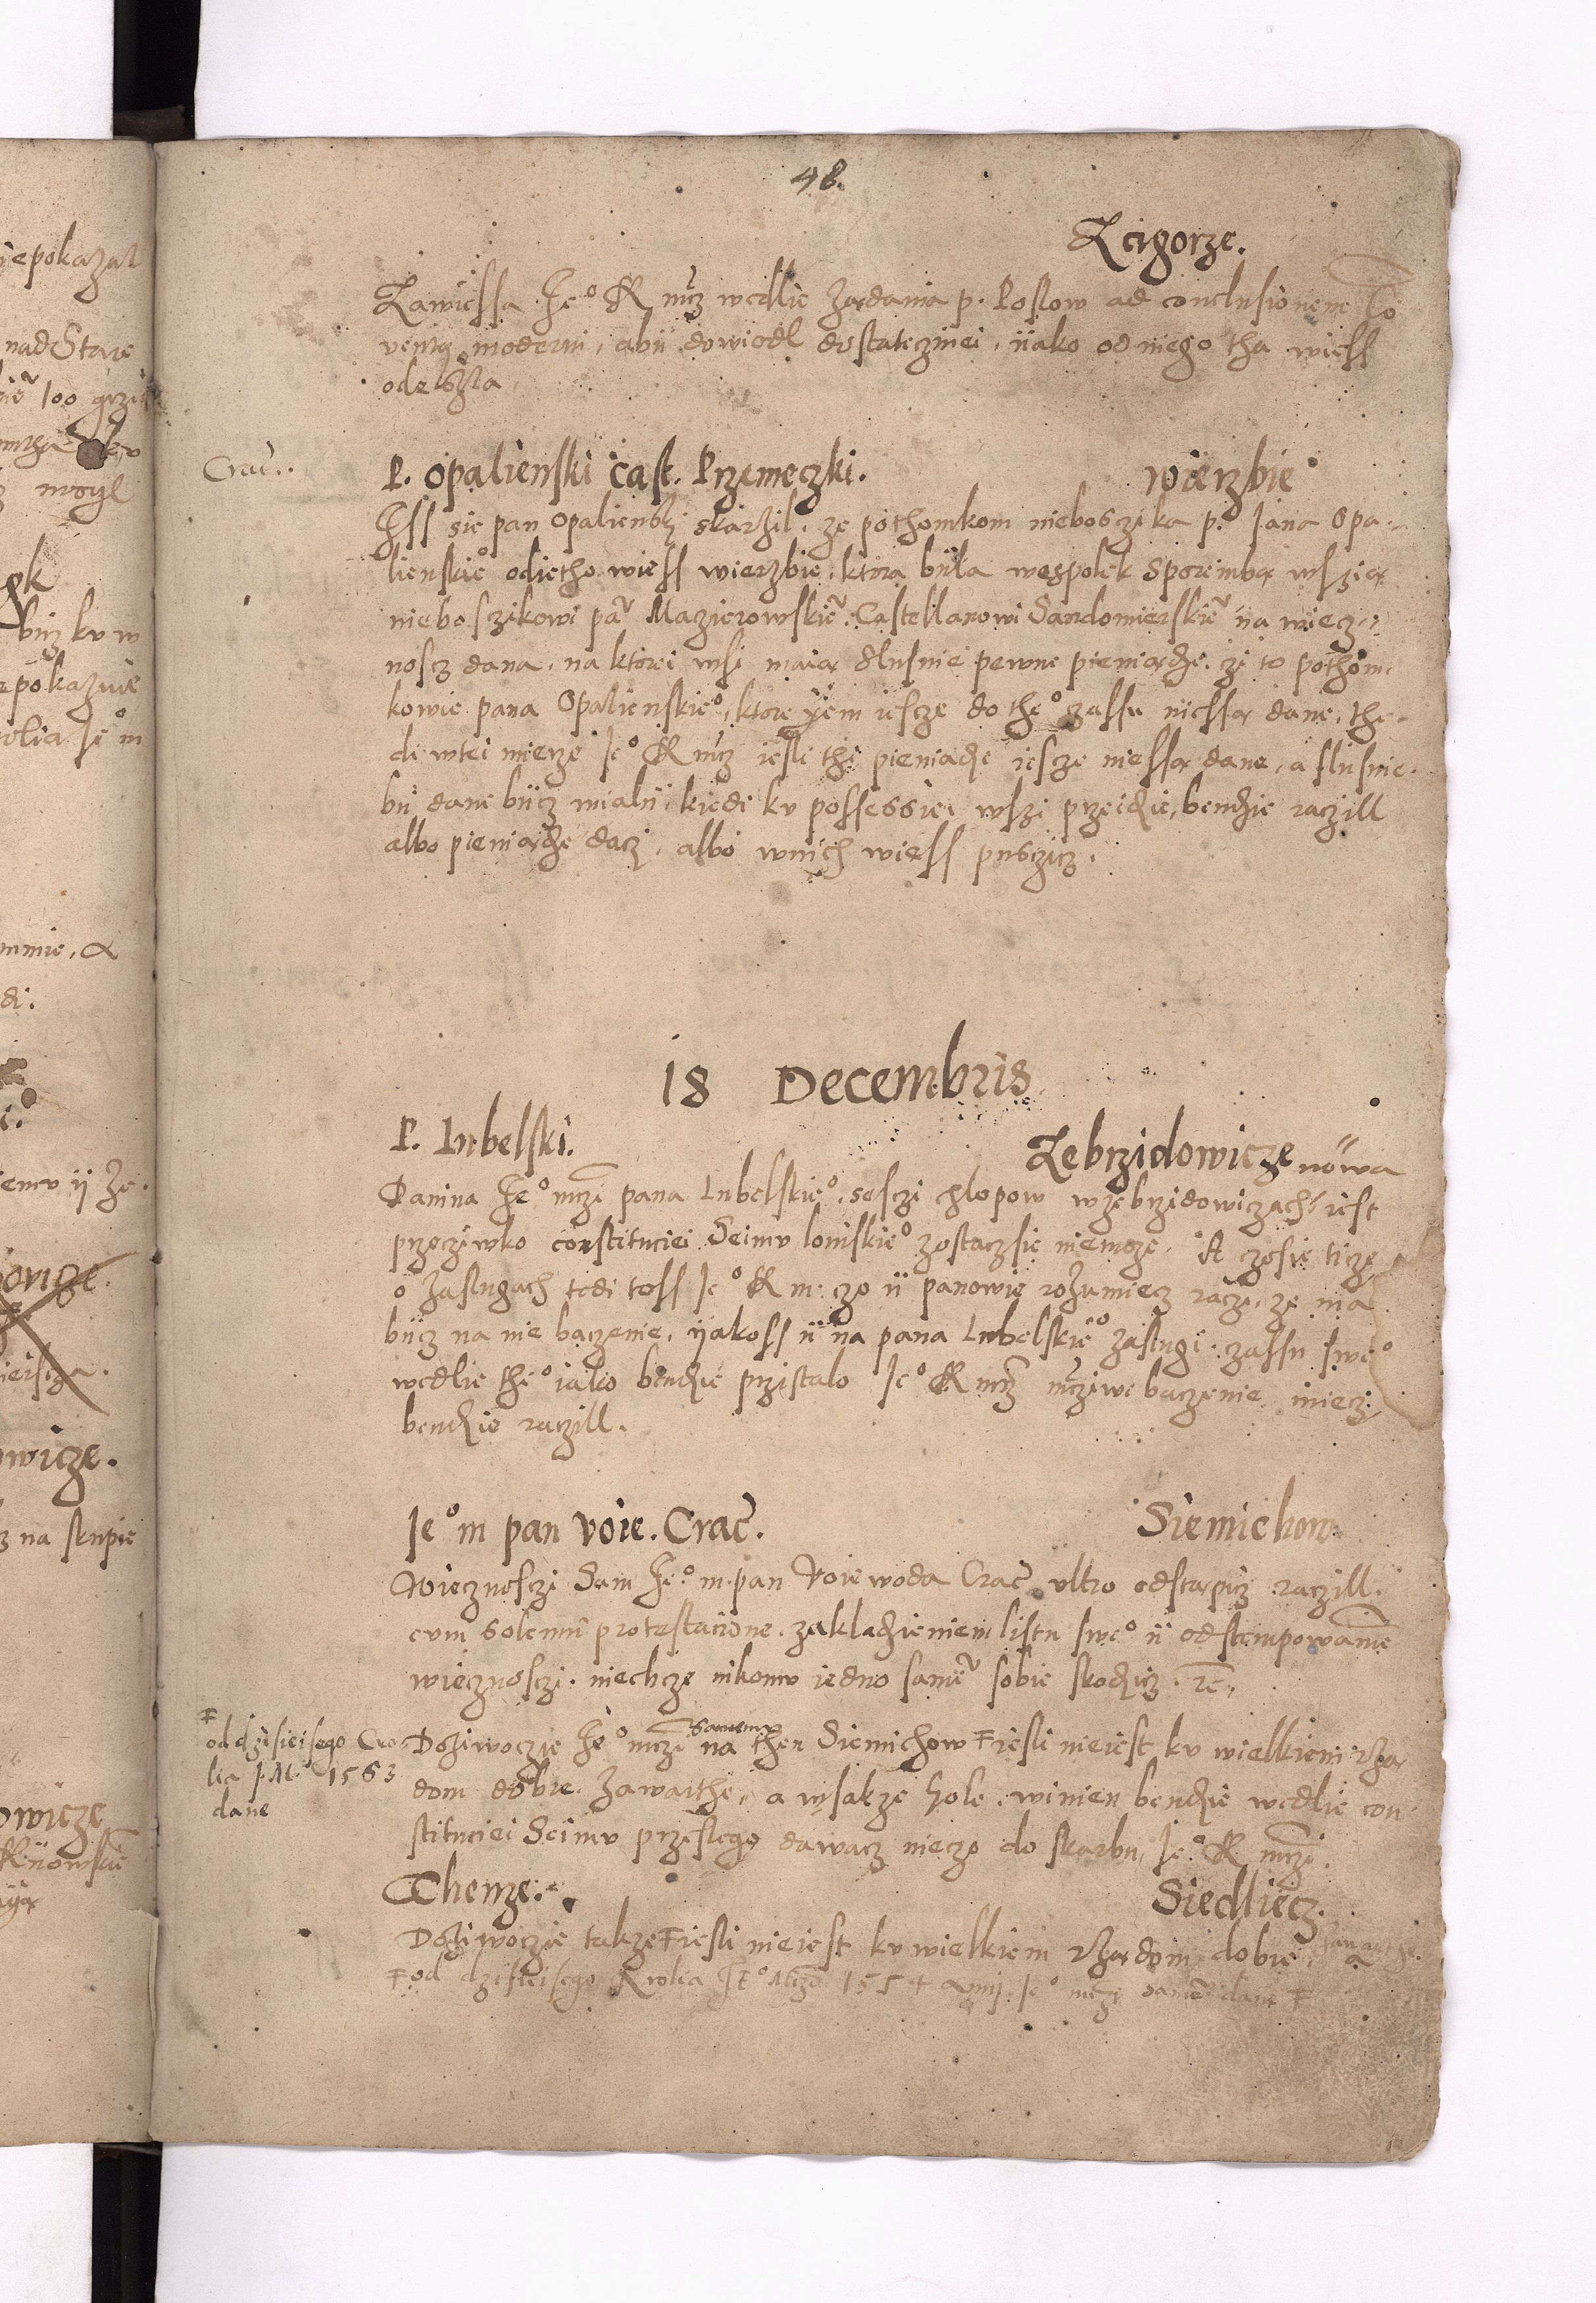 48.
Zcigorze.
Zawiessa Je° K mcz wedlie ządania p. Poslow ad conclusionem Co
ventq moderni, abÿ dowiodl dostatecznei, ÿako od niego tha wiess
odeszla
Crac.
P. Opalienski Cast. Przemeczki. wierzbie
Iss sie pan Opalienski skarzil, ze pothomkom nieboszika p. Jana Opa-
lienskie° odietho wiess wierzbie, ktora bÿla wespolek Sporemba wszią
nieboszikowi pa Maczieiowskie Castellanowi Sandomierskie na wiecz-
nosz dana, na ktorei wsi maią slusnie pewne pieniądze, zi to pothom-
kowie pana Opalienskie°, ktore iem iescze do the° zassu niessą dane, the-
di wtei mierze Je° K mcz iesli thi pieniądze iescze niessą dane, a slusnie
bÿ dane bÿcz mialÿ, kiedi kv possessiei wszi przeidzie, bendzie raczill
albo pieniądze dacz, albo wnich wiess pusczicz.
18 Decembris
P. Lubelski. Zebrzidowicze nowa
Danina Je° mczi pana Lubelskie°, sesczi chlopow wzebrzidowiczach, iest
przeziwko constituciei Seimv lomskie° zostaczsie niemoze. A czosie ticze
o zaslugach tedi toss Je° K m. czo ÿ panowie rozumiecz racze, ze ma
bÿcz na nie baczenie, ÿakoss ÿ na pana Lubelskie° zaslugi, zassu swe°
wedlie the° iako bendzie przistalo Je° K mcz mcziwe baczenie miecz
bendzie raczill.
Je° m pan voie. Crac. Siemichow
Wiecznosczi Sam Je° m. pan Voiewoda Crac vltro odstąpicz raczill.
cvm solemni protestacione, zakladzieniem listu swe° ÿ odstempowanie
wiecznosczi. niechcze nikomv iedno same sobie skodzicz. re.
Doziwoczie Je° mczi samemv na then Siemichow F iesli nieiest kv wielkiem rzą
F
od dzisieisego Cro
lia J. M. 1563
dane
dom dobre zawarthe, a wsakze Sole, winien bendzie wedlie con
stituciei Seimv przeslego dawacz nieczo do skarbu Je° K mczi.
Themze. Siedliecz.
Doziwoczie takze F iesli nieiest kv wielkiem rządom dobre zawarthe. a
F od dzisieisego Krolia Je° Mcze 1554 Je° mczi same dane F